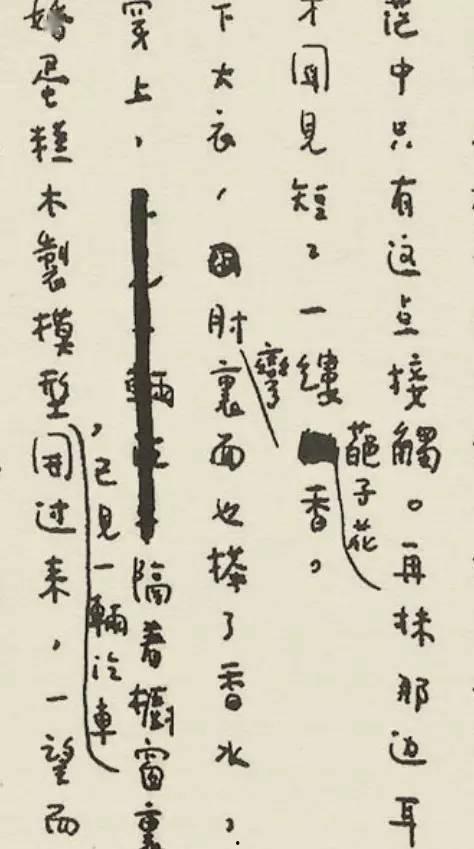 茫中只有这点接觸。再抹那边耳
才聞見短〻一縷葩子花香。
下大衣，肘彎裏面也搽了香水，
穿上，隔着櫥窗裏
婚蛋糕木製模型，已見一輛汽車開过来，一望而